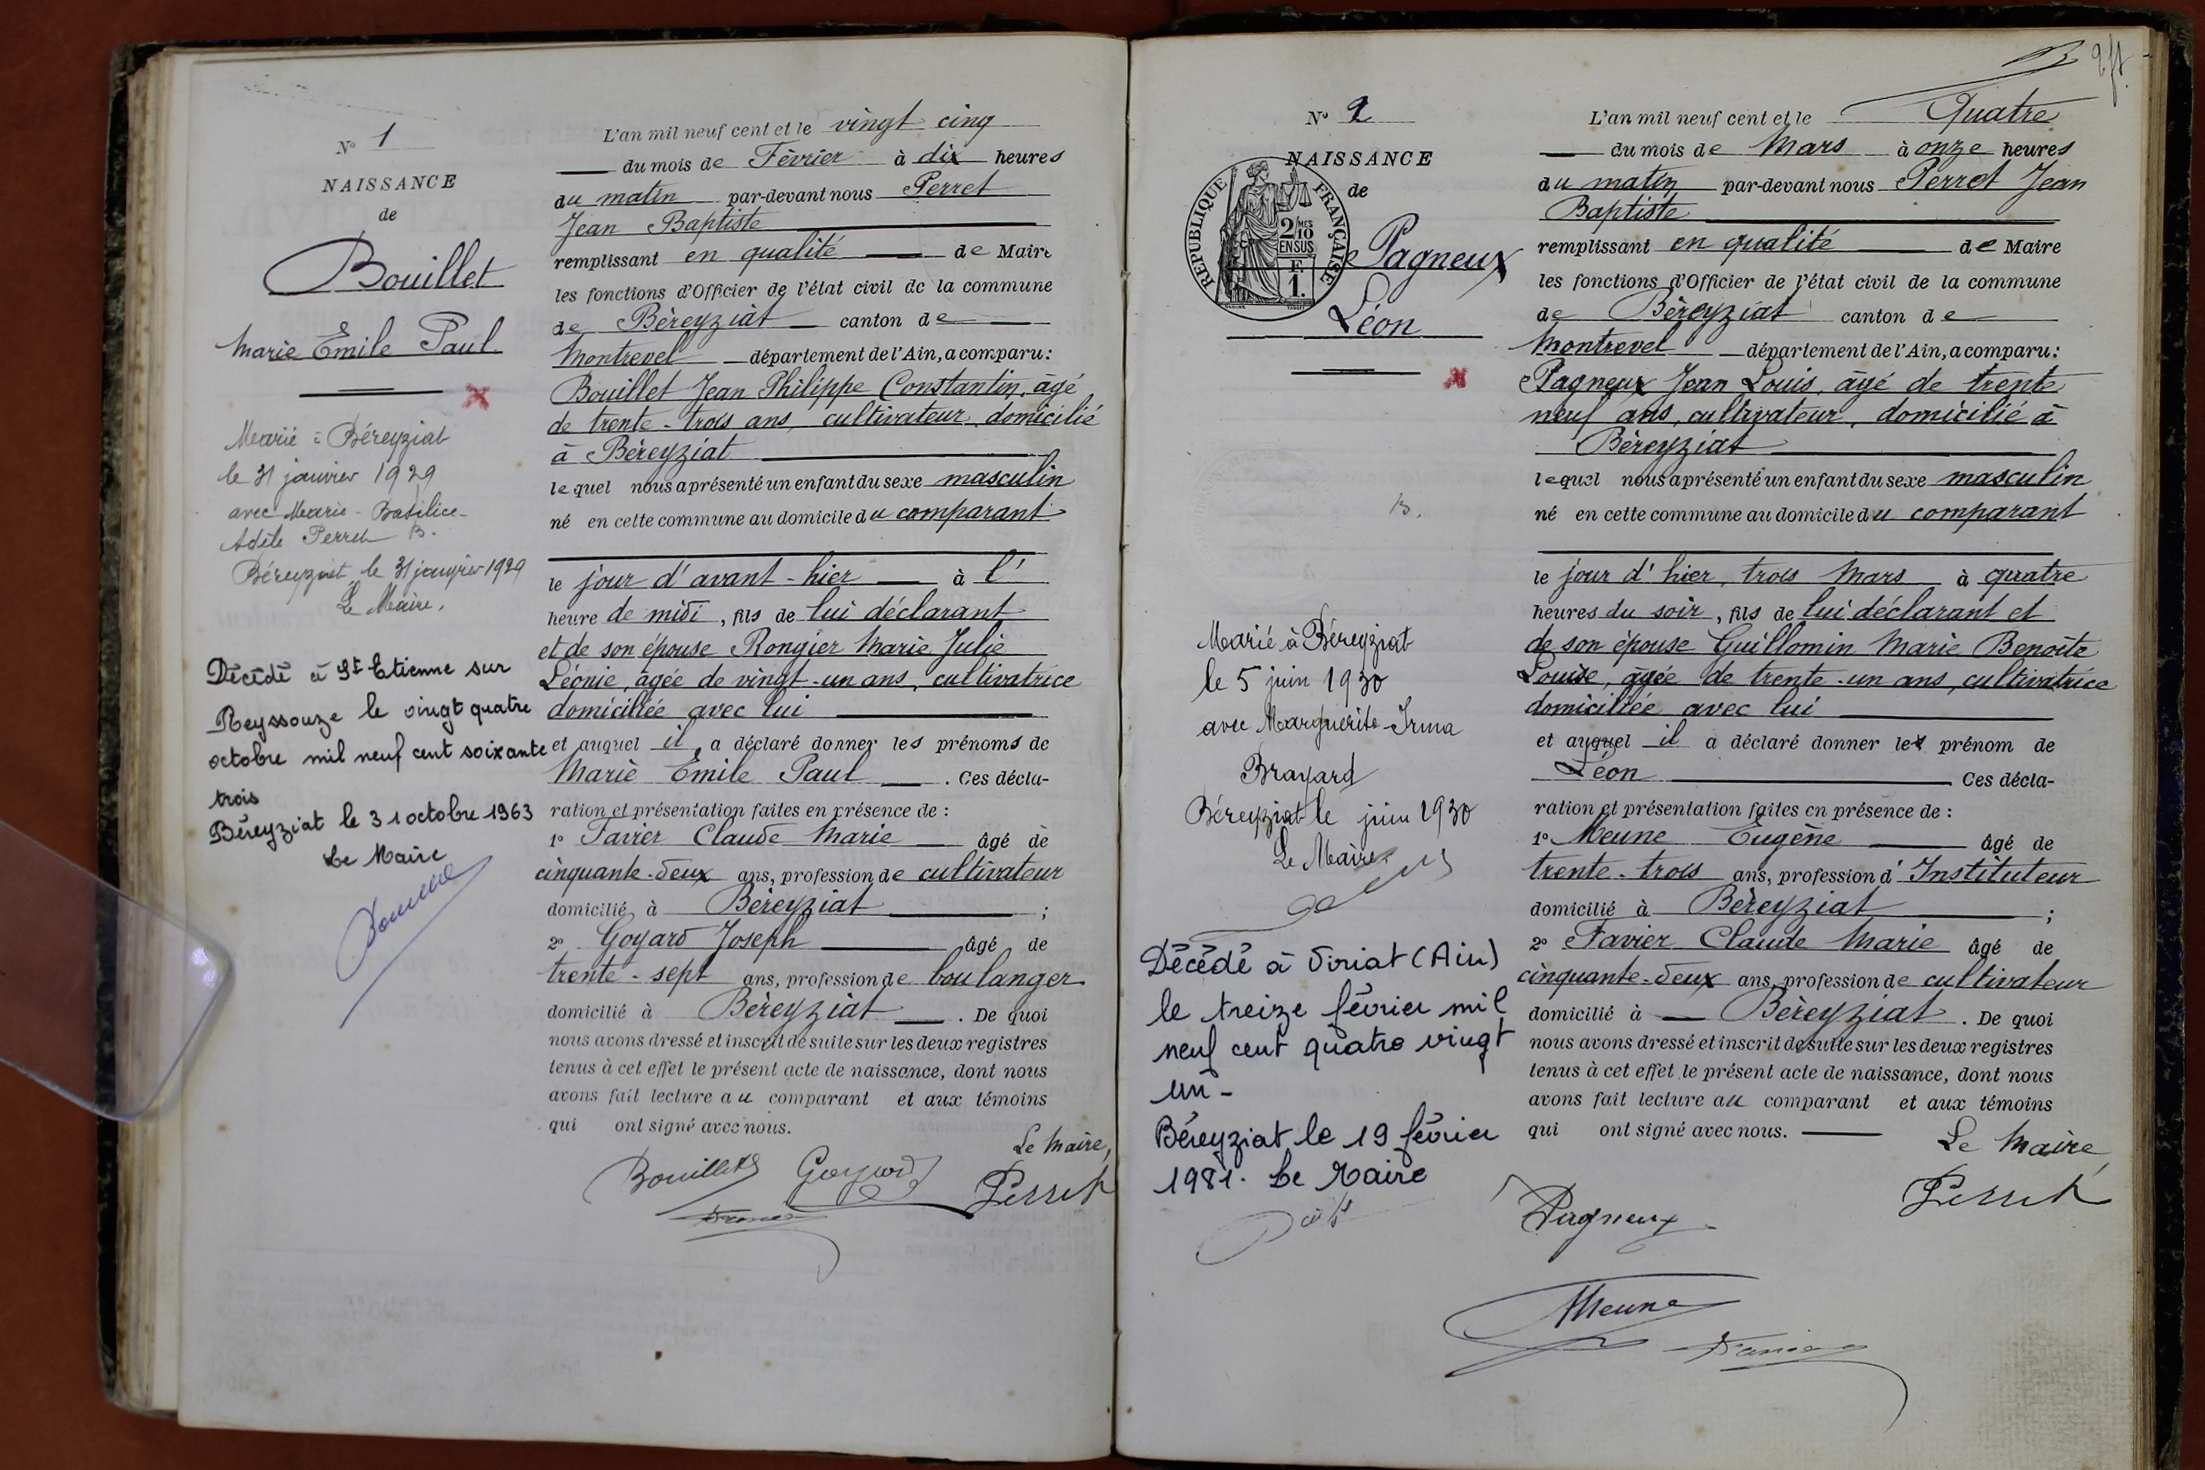 N° 1
NAISSANCE
de
Bouillet
Marie Emile Paul
Marié à Béreyziat
le 31 janvier 1929
avec Marie-Basilice-
Adèle Perret B.
Béreyziat le 31 janvier 1929
Le Maire,
Décédé à St Etienne sur
Reyssouze le vingt quatre
octobre mil neuf cent soixante
trois
Béreyziat le 31 octobre 1963
Le Maire
L'an mil neuf cent et le vingt cinq
du mois de Février à dix heures
du matin par-devant nous Perret
Jean Baptiste
remplissant en qualité de Maire
les fonctions d'Officier de l'état civil de la commune
de Béreyziat canton de
Montrevel département de l'Ain, a comparu:
Bouillet Jean Philippe Constantin, âgé
de trente-trois ans, cultivateur, domicilié
à Béreyziat
lequel nous a présenté un enfant du sexe masculin
né en cette commune au domicile du comparant
le jour d'avant-hier à l'
heure de midi, fils de lui déclarant
et de son épouse Rongier Marie Julie
Léonie, agée de vingt-un ans, cultivatrice
domiciliée avec lui
et auquel il a déclaré donner les prénoms de
Marie Emile Paul. Ces décla-
ration et présentation faites en présence de :
1° Favier Claude Marie âgé de
cinquante-deux ans, profession de cultivateur
domicilié à Béreyziat ;
2° Goyard Joseph âgé de
trente-sept ans, profession de boulanger
domicilié à Béreyziat. De quoi
nous avons dressé et inscrit de suite sur les deux registres
tenus à cet effet le présent acte de naissance, dont nous
avons fait lecture au comparant et aux témoins
qui ont signé avec nous.
Le Maire,
Bouillet Goyard Perret
Favier
N° 2
NAISSANCE
de
RÉPUBLIQUE FRANÇAISE
2/10 MES
EN SUS
F.
1.
Pagneux
Léon
B.
Marié à Béreyziat
le 5 juin 1930
avec Marguerite-Irma
Brayard
Béreyziat le juin 1930
Le Maire
Décédé à Viriat (Ain)
le treize février mil
neuf cent quatre vingt
un -
Béreyziat le 19 février
1981. Le Maire
L'an mil neuf cent et le Quatre
du mois de Mars à onze heures
du matin par-devant nous Perret Jean
Baptiste
remplissant en qualité de Maire
les fonctions d'Officier de l'état civil de la commune
de Béreyziat canton de
Montrevel département de l'Ain, a comparu:
Pagneux Jean Louis, âgé de trente
neuf ans, cultivateur, domicilié à
Béreyziat
lequel nous a présenté un enfant du sexe masculin
né en cette commune au domicile du comparant
le jour d'hier, trois Mars à quatre
heures du soir, fils de lui déclarant et
de son épouse Guillomin Marie Benoîte
Louise, âgée de trente-un ans, cultivatrice
domiciliée avec lui
et auquel il a déclaré donner le prénom de
Léon Ces décla-
ration et présentation faites en présence de :
1° Meune Eugène âgé de
trente-trois ans, profession d'Instituteur
domicilié à Béreyziat ;
2° Favier Claude Marie âgé de
cinquante-deux ans, profession de cultivateur
domicilié à Béreyziat. De quoi
nous avons dressé et inscrit de suite sur les deux registres
tenus à cet effet le présent acte de naissance, dont nous
avons fait lecture au comparant et aux témoins
qui ont signé avec nous.
Le Maire,
Pagneux Perret
Meune
Favier